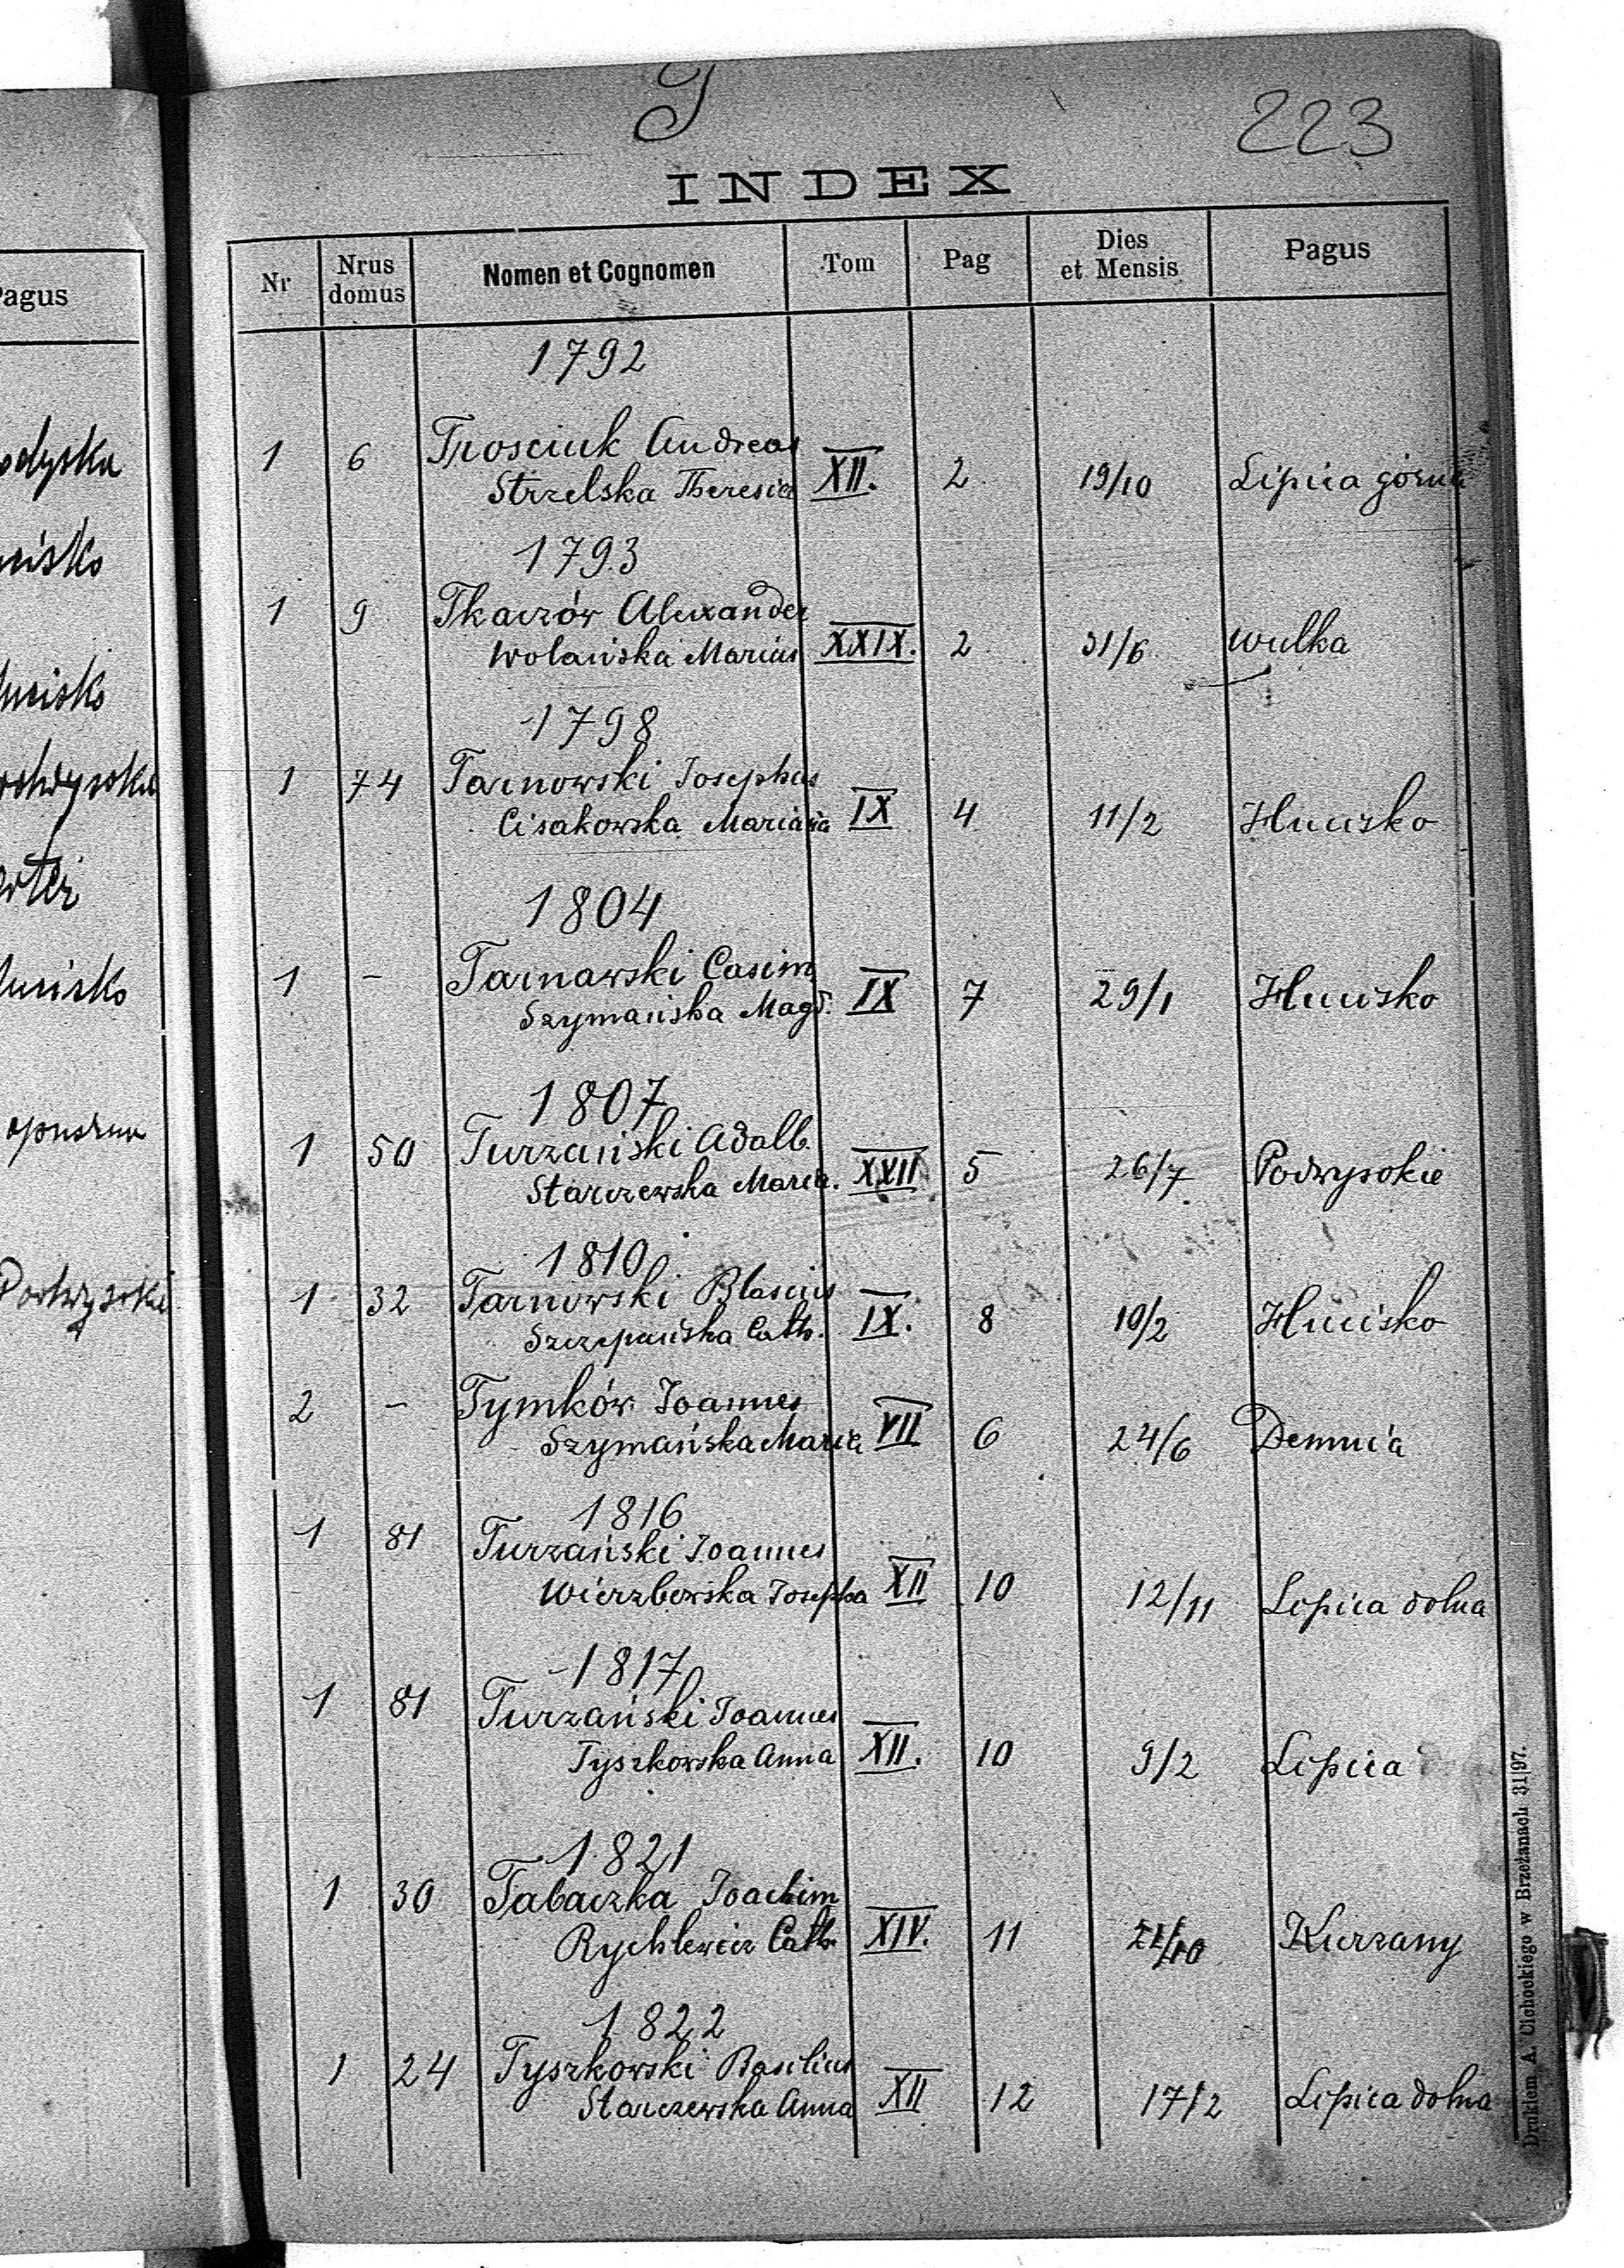 T
223
INDEX
Nr Nrus domus Nomen et Cognomen Tom Pag Dies et Mensis Pagus
1792
1 6 Trosciuk Andreas
Strzelska Theresia XII. 2 19/10 Lipica górna
1793
1 9 Tkaczów Alexander
Wolańska Marian XXIX. 2 31/6 Wulka
1798
1 74 Tarnowski Josephus
Cisakowska Marianna IX 4 11/2 Hucisko
1804
1 - Tarnawski Casim
Szymańska Magd. IX 7 29/1 Hucisko
1807
1 50 Turzański Adalb.
Starczewska Maria. XXII 5 26/7 Podwysokie
1810
1 32 Tarnowski Blasius
Szczepańska Cath. IX. 8 10/2 Hucisko
2 - Tymków Joannes
Szymańska Maria VII 6 24/6 Demnia
1816
1 81 Turzański Joannes
Wierzbowska Josepha XII 10 12/11 Lipica dolna
1817
1 81 Turzański Joannes
Tyszkowska Anna XII. 10 9/2 Lipica
1821
1 30 Tabaczka Joachim
Rychlewicz Cath. XIV. 11 /10 Kurzany
1822
1 24 Tyszkowski Basilius
Starczewska Anna XII 12 17/2 Lipica dolna
Drukiem A. Cichockiego w Brzeżanach 31|97.
Pagus